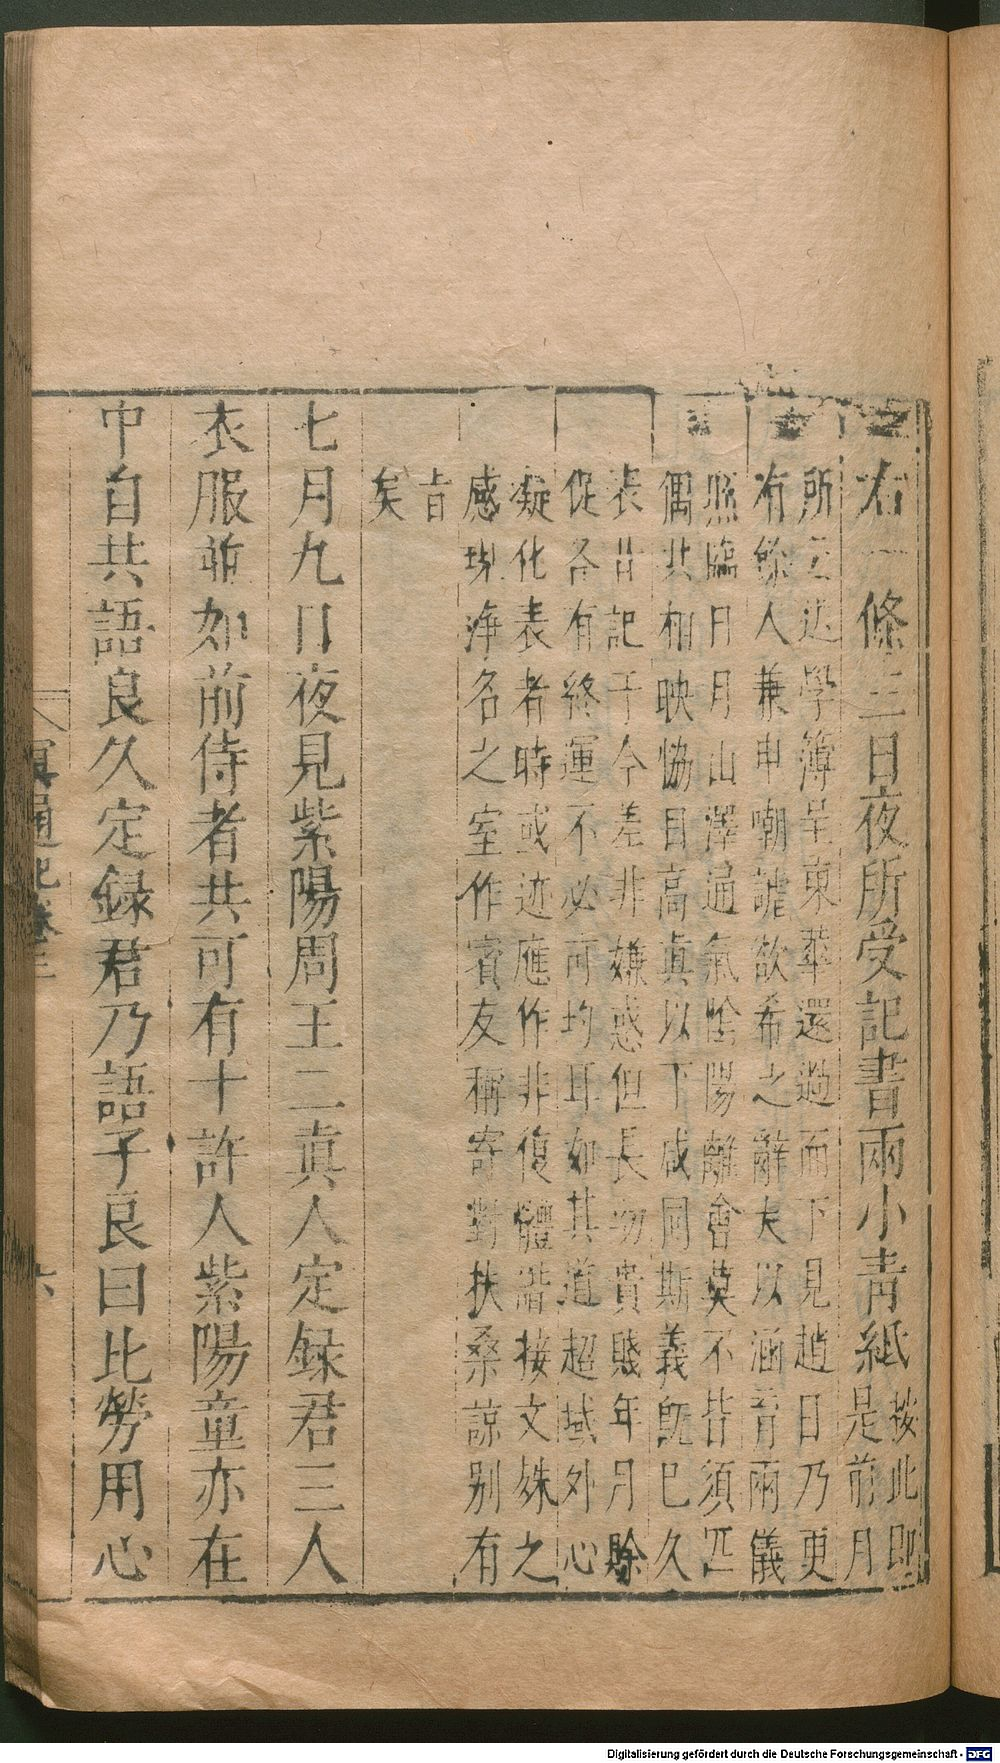 右一條三日夜所受記書兩小青紙按此即
是前月
所云送學簿呈東華還過而下見趙日乃更
有餘人兼申嘲謔欲希之辭夫以涵育兩儀
照臨日月山澤通氣陰陽離會莫不皆須匹
偶共相映協目高真以下咸同斯義既已久
表廿記于今差非嫌惑但長幼貴賤年月賒
促各有終運不必可均耳如其道超域外心
凝化表者時或迹應作非復體潛接文姝之
感現淨名之室作賓友稱寄對扶桑諒別有
旨
矣
七月九日夜見紫陽周王二真人定録君三人
衣服並如前侍者共可有十許人紫陽童亦在
中自共語良久定録君乃語子良曰比勞用心
冥通記卷三
六
Digitalisierung gefördert durch die Deutsche Forschungsgemeinschaft - DFG